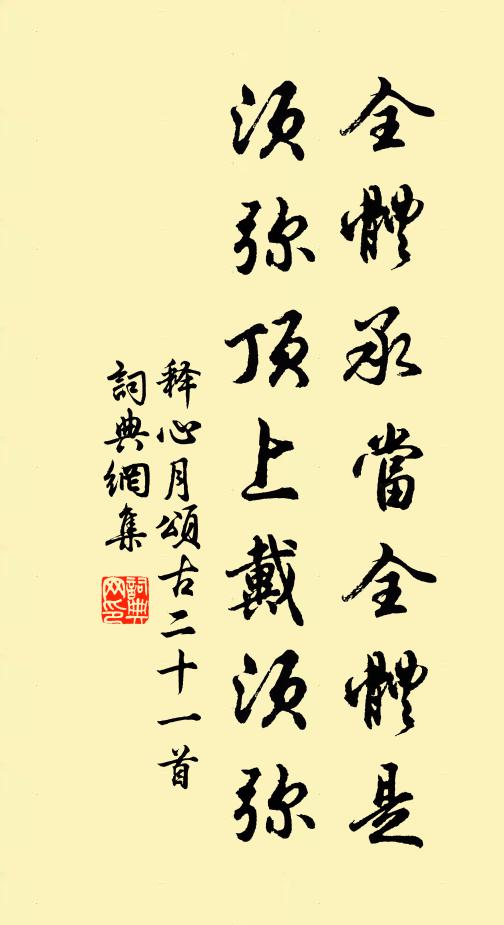 全體承當全體是
須弥頂上戴須弥
释心月頌古二十一首
詞典網集
詞典網印